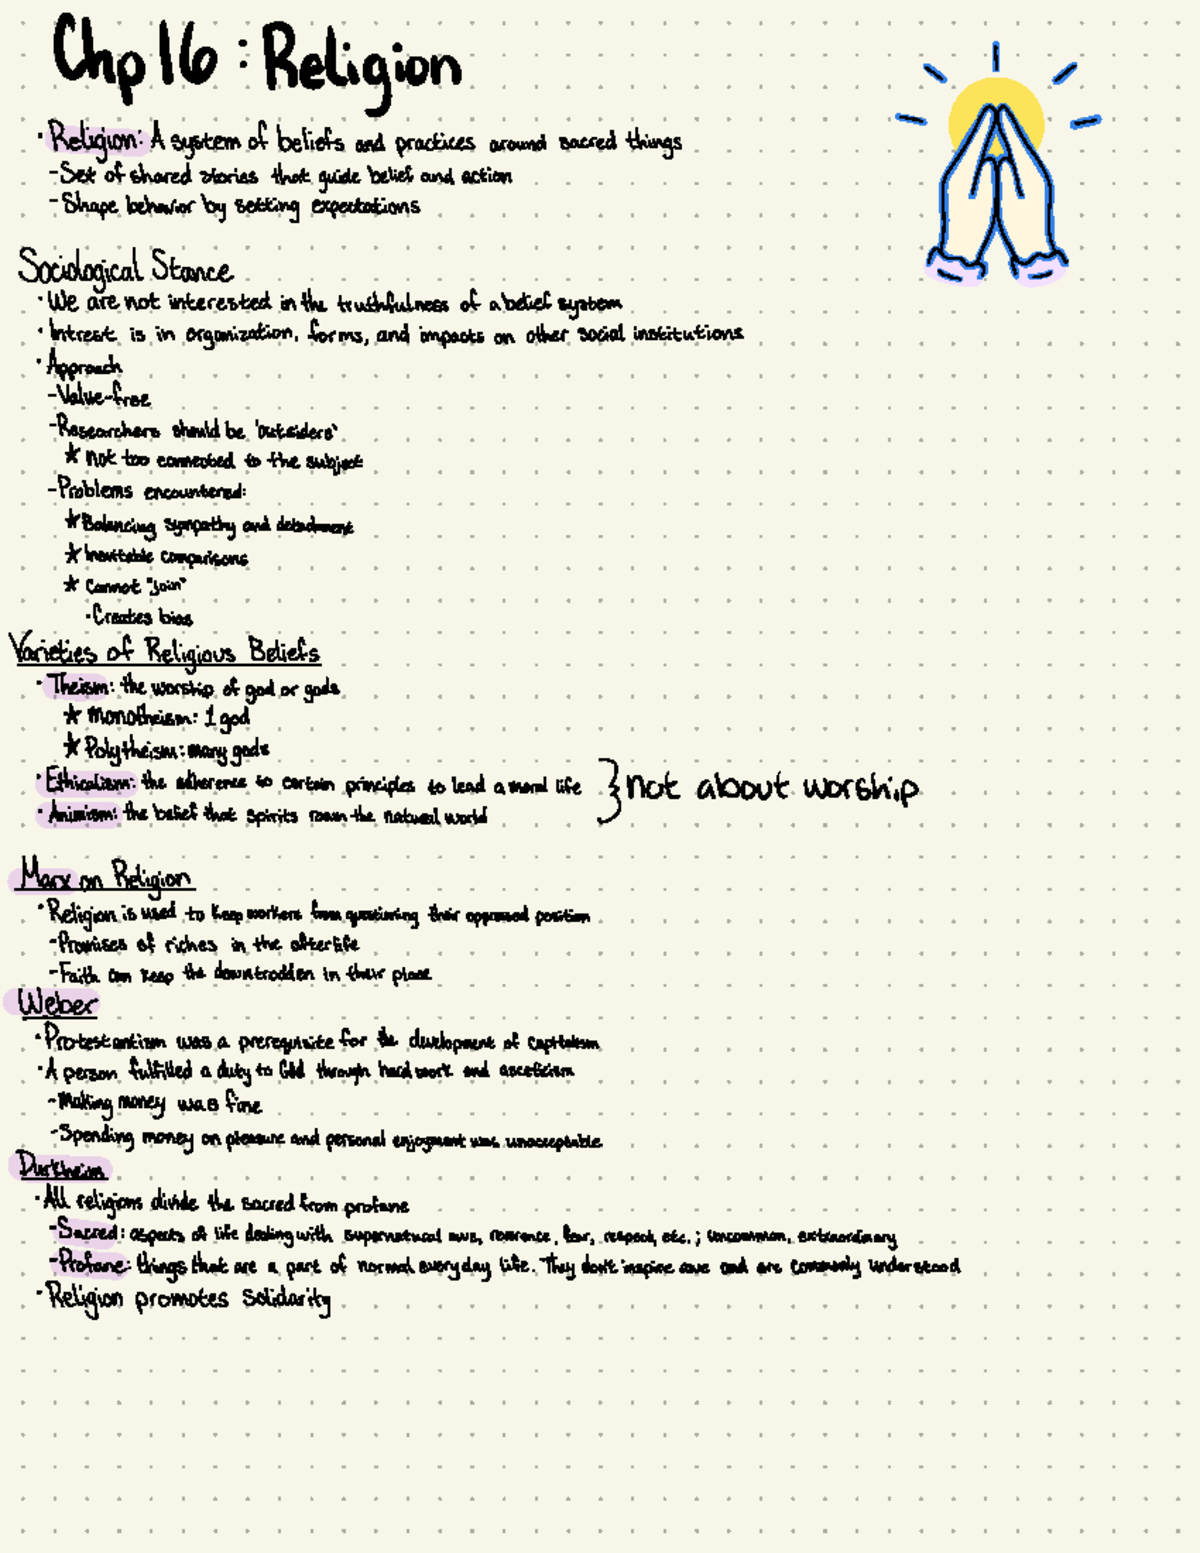 Chp 16 : Religion
· Religion: A system of beliefs and practices around sacred things
- Set of shared stories that guide belief and action
- Shape behavior by setting expectations
Sociological Stance
· We are not interested in the truthfulness of a belief system
· Intrest is in organization, forms, and impacts on other social institutions
· Approach
- Value-free
- Researchers should be 'outsiders'
★ not too connected to the subject
- Problems encountered:
★ Balancing sympathy and detachment
★ Inevitable comparisons
★ Cannot "join"
· Creates bias
Varieties of Religious Beliefs
· Theism: the worship of god or gods
★ Monotheism: 1 god
★ Polytheism: many gods
· Ethicalism: the adherence to certain principles to lead a moral life } not about worship
· Animism: the belief that spirits roam the natural world
Marx on Religion
· Religion is used to keep workers from questioning their oppressed position
- Promises of riches in the afterlife
- Faith can keep the downtrodden in their place
Weber
· Protestantism was a prerequisite for the development of capitalism
· A person fulfilled a duty to God through hard work and asceticism
- Making money was fine
- Spending money on pleasure and personal enjoyment was unacceptable
Durkheim
· All religions divide the sacred from profane
- Sacred: aspects of life dealing with supernatural awe, reverence, fear, respect, etc.; uncommon, extraordinary
- Profane: things that are a part of normal everyday life. They don't inspire awe and are commonly understood
· Religion promotes solidarity